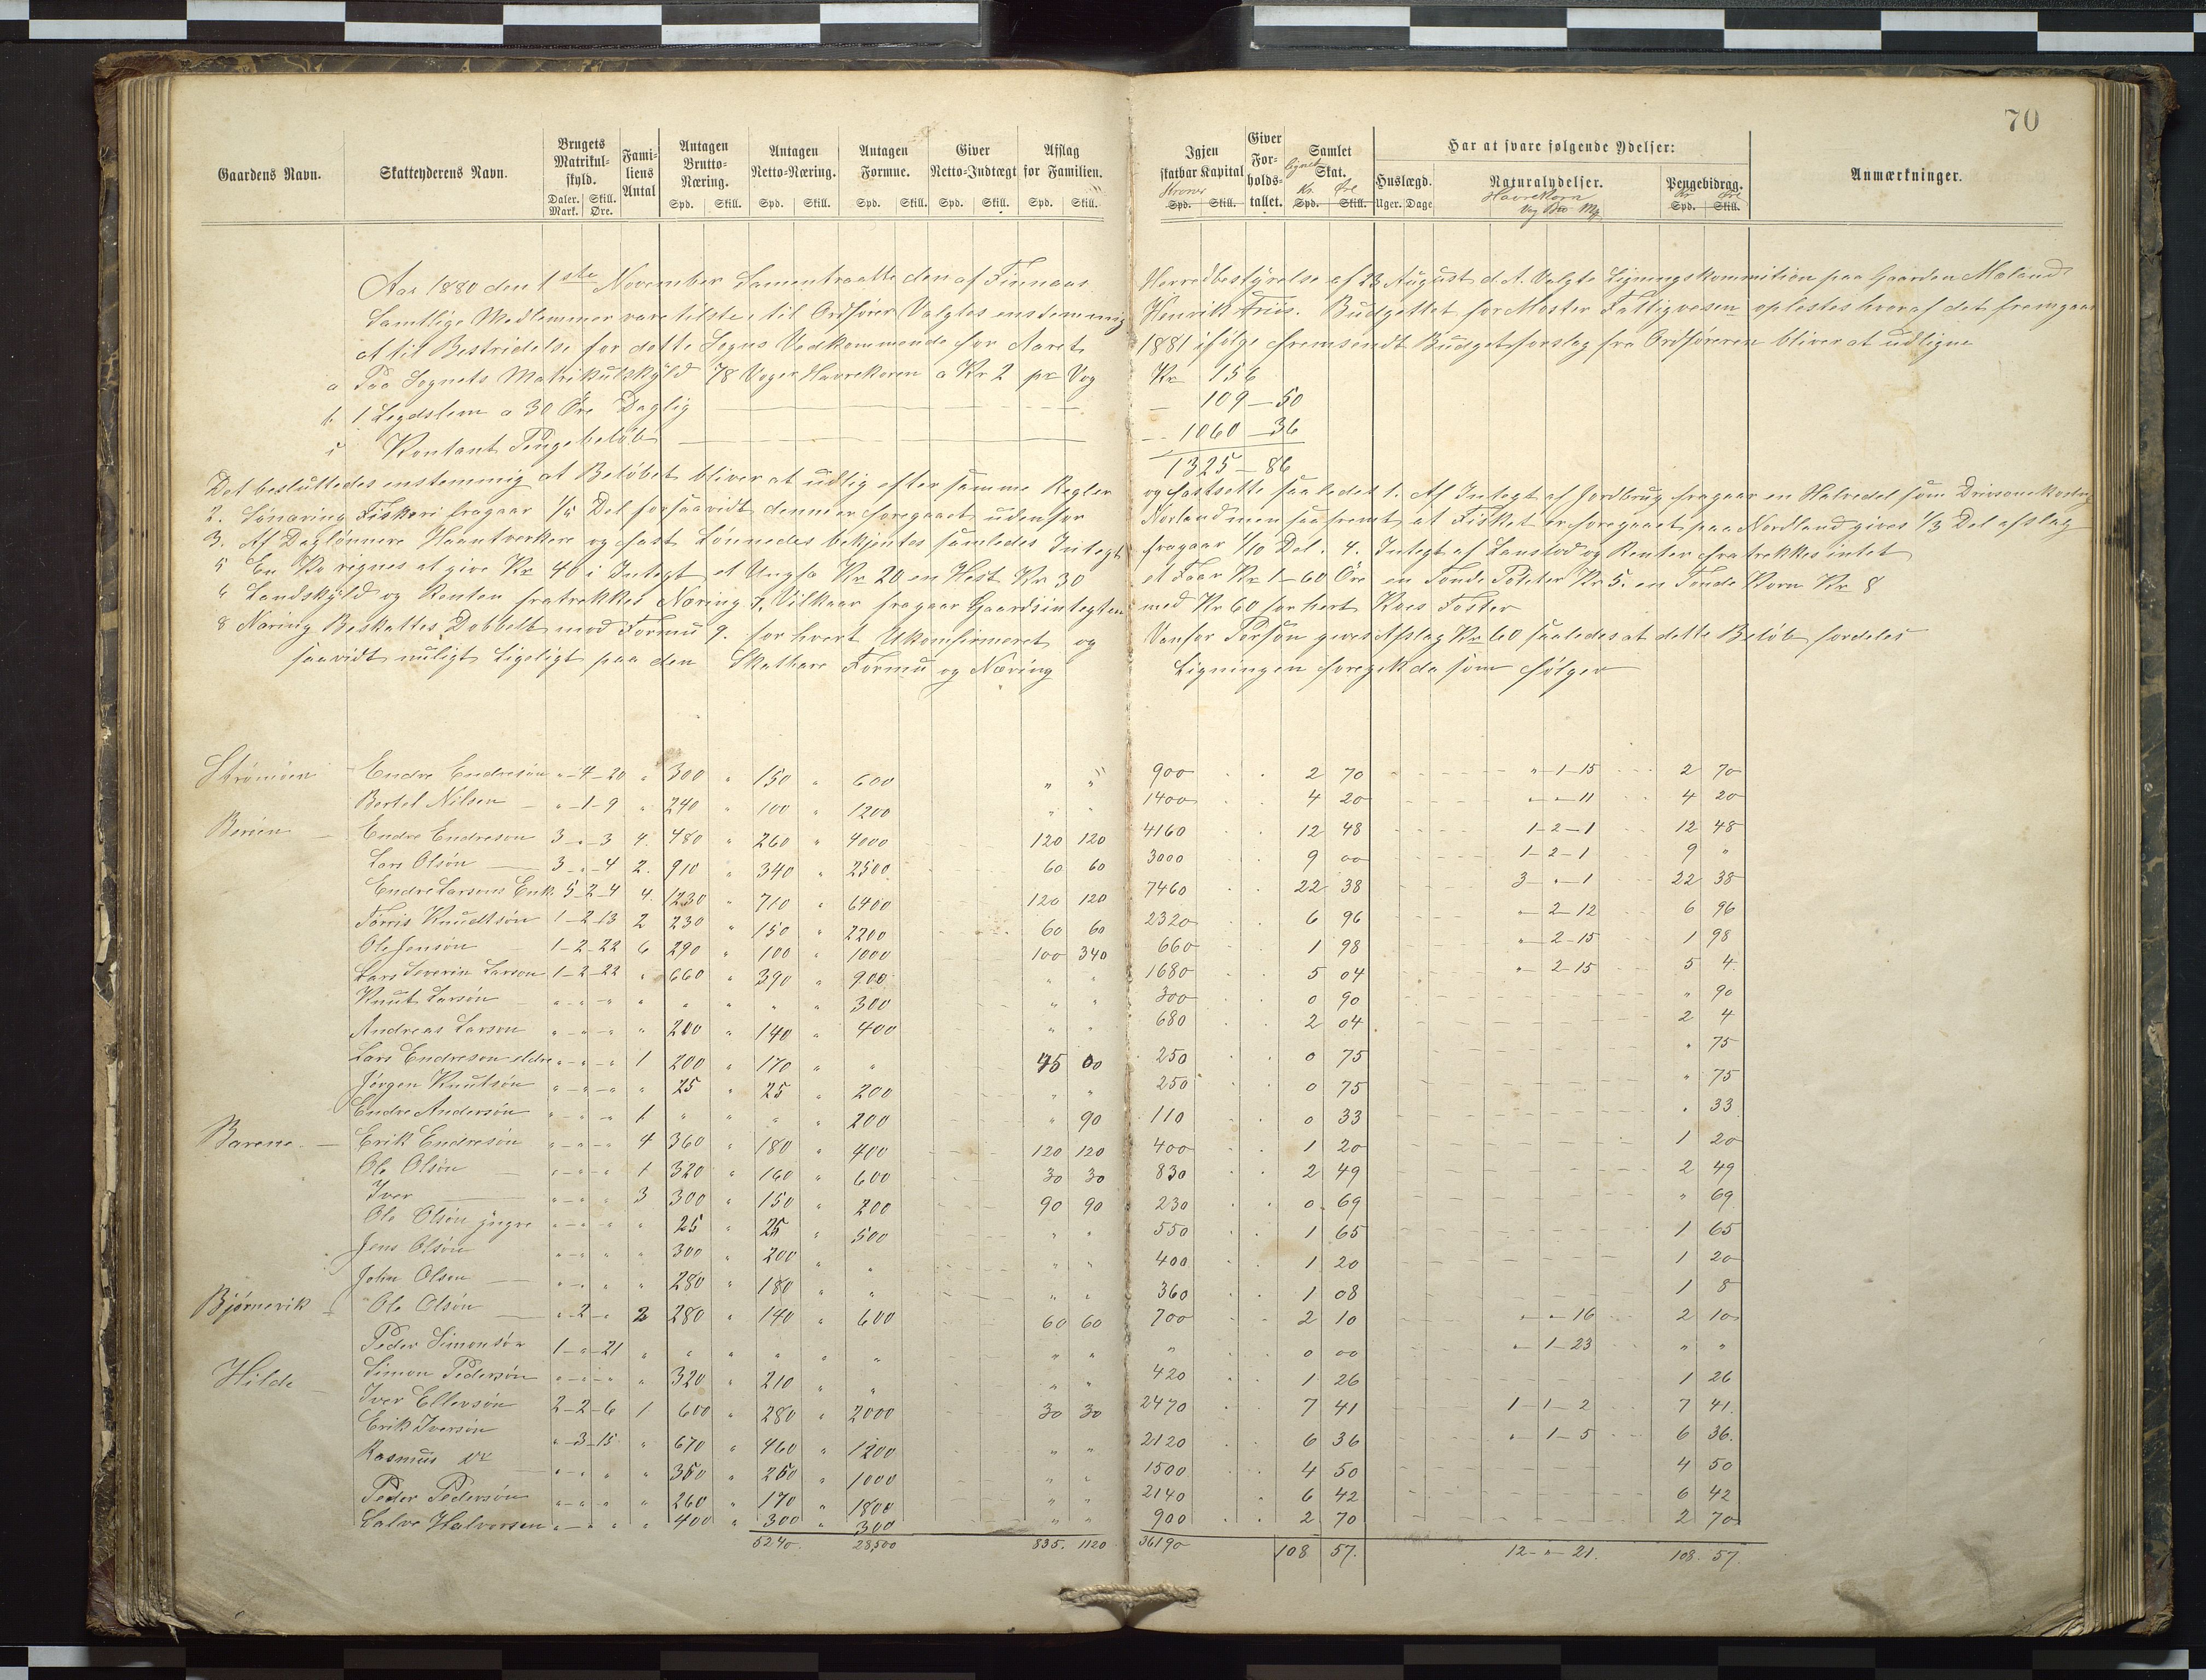 70
Gaardens Navn. Skatteyderens Navn. Brugets Matrikul-skyld. Fami-liens Antal Antagen Brutto-Næring. Antagen Netto-Næring. Antagen Formue. Giver Netto-Indtægt Afslag for Familien. Igjen skatbar Kapital Giver For-holds-tallet. lignet Samlet Skat. Har at svare følgende Ydelser: Anmærkninger.
Huslægd. Naturalydelser. Pengebidrag.
Daler. Skill. Mark. Øre. Spd. Skill. Spd. Skill. Spd. Skill. Spd. Skill. Spd. Skill. Kroner Spd. Skill. Kr. Øre Spd. Skill. Uger. Dage Havrekorn Vog Mk Kr Øre Spd. Skill.
Aar 1880 den 1ste November Sammentraatte den af Finnaas Herredbestyrelse af 23 August d. A. Valgte Ligningskommition paa Gaarden Mæland
Samtlige Medlemmer vare tilste, til Ordfører Valgtes enstemmig Henrik Friis. Budgettet for Moster Fattigvesen oplestes hvoraf det fremgaar
at til Bestridelse for dette Sogns Vedkommende for Aaret 1881 ifølge fremsendt Budgetforslag fra Ordføreren bliver at udligne
a Paa Sognets Matrikulskyld 78 Voger Havrekoren a Kr 2 pr Vog Kr 156
b. 1 Legdslem a 30 Øre Daglig — 109-50
c Kontant Pengebeløb — 1060-36
1325-86
Det besluttedes enstemmig at Beløbet bliver at udlig efter samme Regler og fastsette saaledes 1. Af Integt af Jordbrug fragaar en Halvedel som
2. Fiskeri fragaar 1/5 Del forsaavidt denne er foregaaet udenfor Norland men saa fremt at Fisket er foregaaet paa Nordland gives 1/3 Del afslag
3. Af Daglønnere Haantverkere og fast Lønnedes bekjentes samledes Integt fragaar 1/10 Del. 4. Integt af og Renter fratrekkes intet
5 En Ko regnes at give Kr 40 i Integt et Ungfæ Kr 20 en Hest Kr 30 et Faar Kr 1-60 Øre en Tønde Poteter Kr 5. en Tønde Korn Kr 8
6 Landskyld og Renter fratrekkes Næring 7. Vilkaar fragaar Gaardsintegten med Kr 60 for hvert Koes Foster
8 Næring Beskattes Dobbelt mod Formu 9. for hvert Ukonfirmeret og Vanfør Person gives Afslag Kr 60 saaledes at dette Beløb fordeles
saavidt muligt ligeligt paa den Skatbare Formu og Næring Ligningen foregik da som følger
Strømøen Endre Endresøn " - 4 - 20 " 300 " 150 " 600 " " 900 2 70 " - 1 - 15 2 70
Bertel Nilsen " - 1 - 9 " 240 " 100 " 1200 " " 1400 4 20 " - " - 11 4 20
Endre Endreson 3 - " 3 4. 480 " 260 " 4000 120 120 4160 12 48 1-2-1 12 48
Lars Olsøn 3 - " - 4 2. 910 " 340 " 2500 60 60 3000 9 00 1-2-1 9 "
Endre Larsons Enk 5-2-4 4. 1230 " 710 " 6400 120 120 7460 22 38 3 - " - 1 22 38
Tørris Knudtsøn 1-2-13 2 230 " 150 " 2200 60 60 2320 6 96 " - 2-12 6 96
Ole Jensøn 1-2-22 6 290 " 100 " 1000 100 340 660 1 98 " - 2-15 1 98
Lars Severin Larson 1-2-22 " 660 " 390 " 900 " " 1680 5 04 " - 2-15 5 4
Knut Larsøn " - " - " " " " " 300 " " 300 0 90 " 90
Andreas Larson " - " - " " 200 " 140 " 400 " " 680 2 04 2 4
Lars Endreson eldre " - " - " 1 200 " 170 " " 45 00 250 0 75 " 75
Jørgen Knutsøn " - " - " " 25 " 25 " 200 " " 250 0 75 " 75
Endre Andersøn " - " - " 1 " " " " 200 " 90 110 0 33 " 33
Barene Erik Endresøn " - " - " 4 360 " 180 " 400 120 120 400 1 20 1 20
Ole Olsøn " - " - " 1 320 " 160 " 600 30 30 830 2 49 2 49
Iver " - " - " 3 300 " 150 " 200 90 90 230 0 69 " 69
Ole Olsøn yngre " - " - " " 25 " 25 " 500 " " 550 1 65 1 65
Jens Olsøn " - " " " 300 " 200 " " " " 400 1 20 1 20
John Olson " - " " " 280 " 180 " " " " 360 1 08 1 8
Bjørnevik Ole Olsøn " - 2 - " 2 280 " 140 " 600 60 60 700 2 10 " - " - 16 2 10
Peder Simonsøn 1 - " - 21 " " " " " " " " " 0 00 " - 1-23 " "
Hilde Simon Pedersøn " - " - " " 320 " 210 " " " " 420 1 26 1 26
Iver Ellevsøn 2-2-6 1 600 " 280 " 2000 30 30 2470 7 41 1-1-2 7 41.
Erik Iversøn " - 3-15 " 670 " 460 " 1200 " " 2120 6 36 " - 1-5 6 36.
Rasmus " - " " " 350 " 250 " 1000 " " 1500 4 50 4 50
Peder Pedersøn " - " " " 260 " 170 " 1800 " " 2140 6 42 6 42
Salve Halvorsen " - " " " 400 " 300 " 300 " " 900 2 70 2 70
5240. 28,500 835. 1120 36190 108 57. 12 - " - 21. 108. 57.